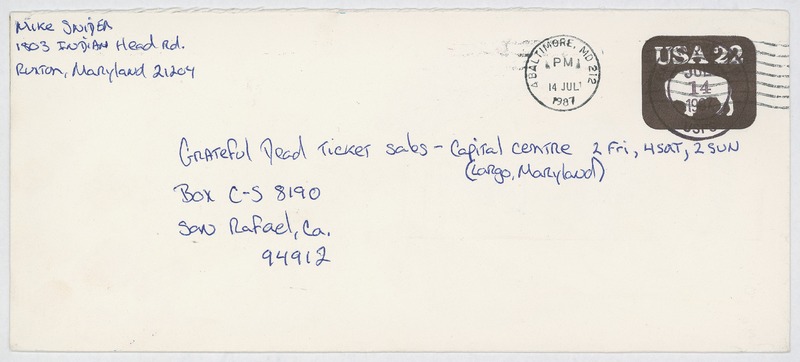 Mike Snider
1803 Indian Head Rd.
Ruxton, Maryland 21204
BALTIMORE, MD 212
PM
14 JUL
1987
USA 22
JUL
14
1987
USPS
Grateful Dead Ticket Sales - Capital Centre 2 Fri, 4 SAT, 2 SUN
(Largo, Maryland)
Box C-S 8190
San Rafael, Ca.
94912